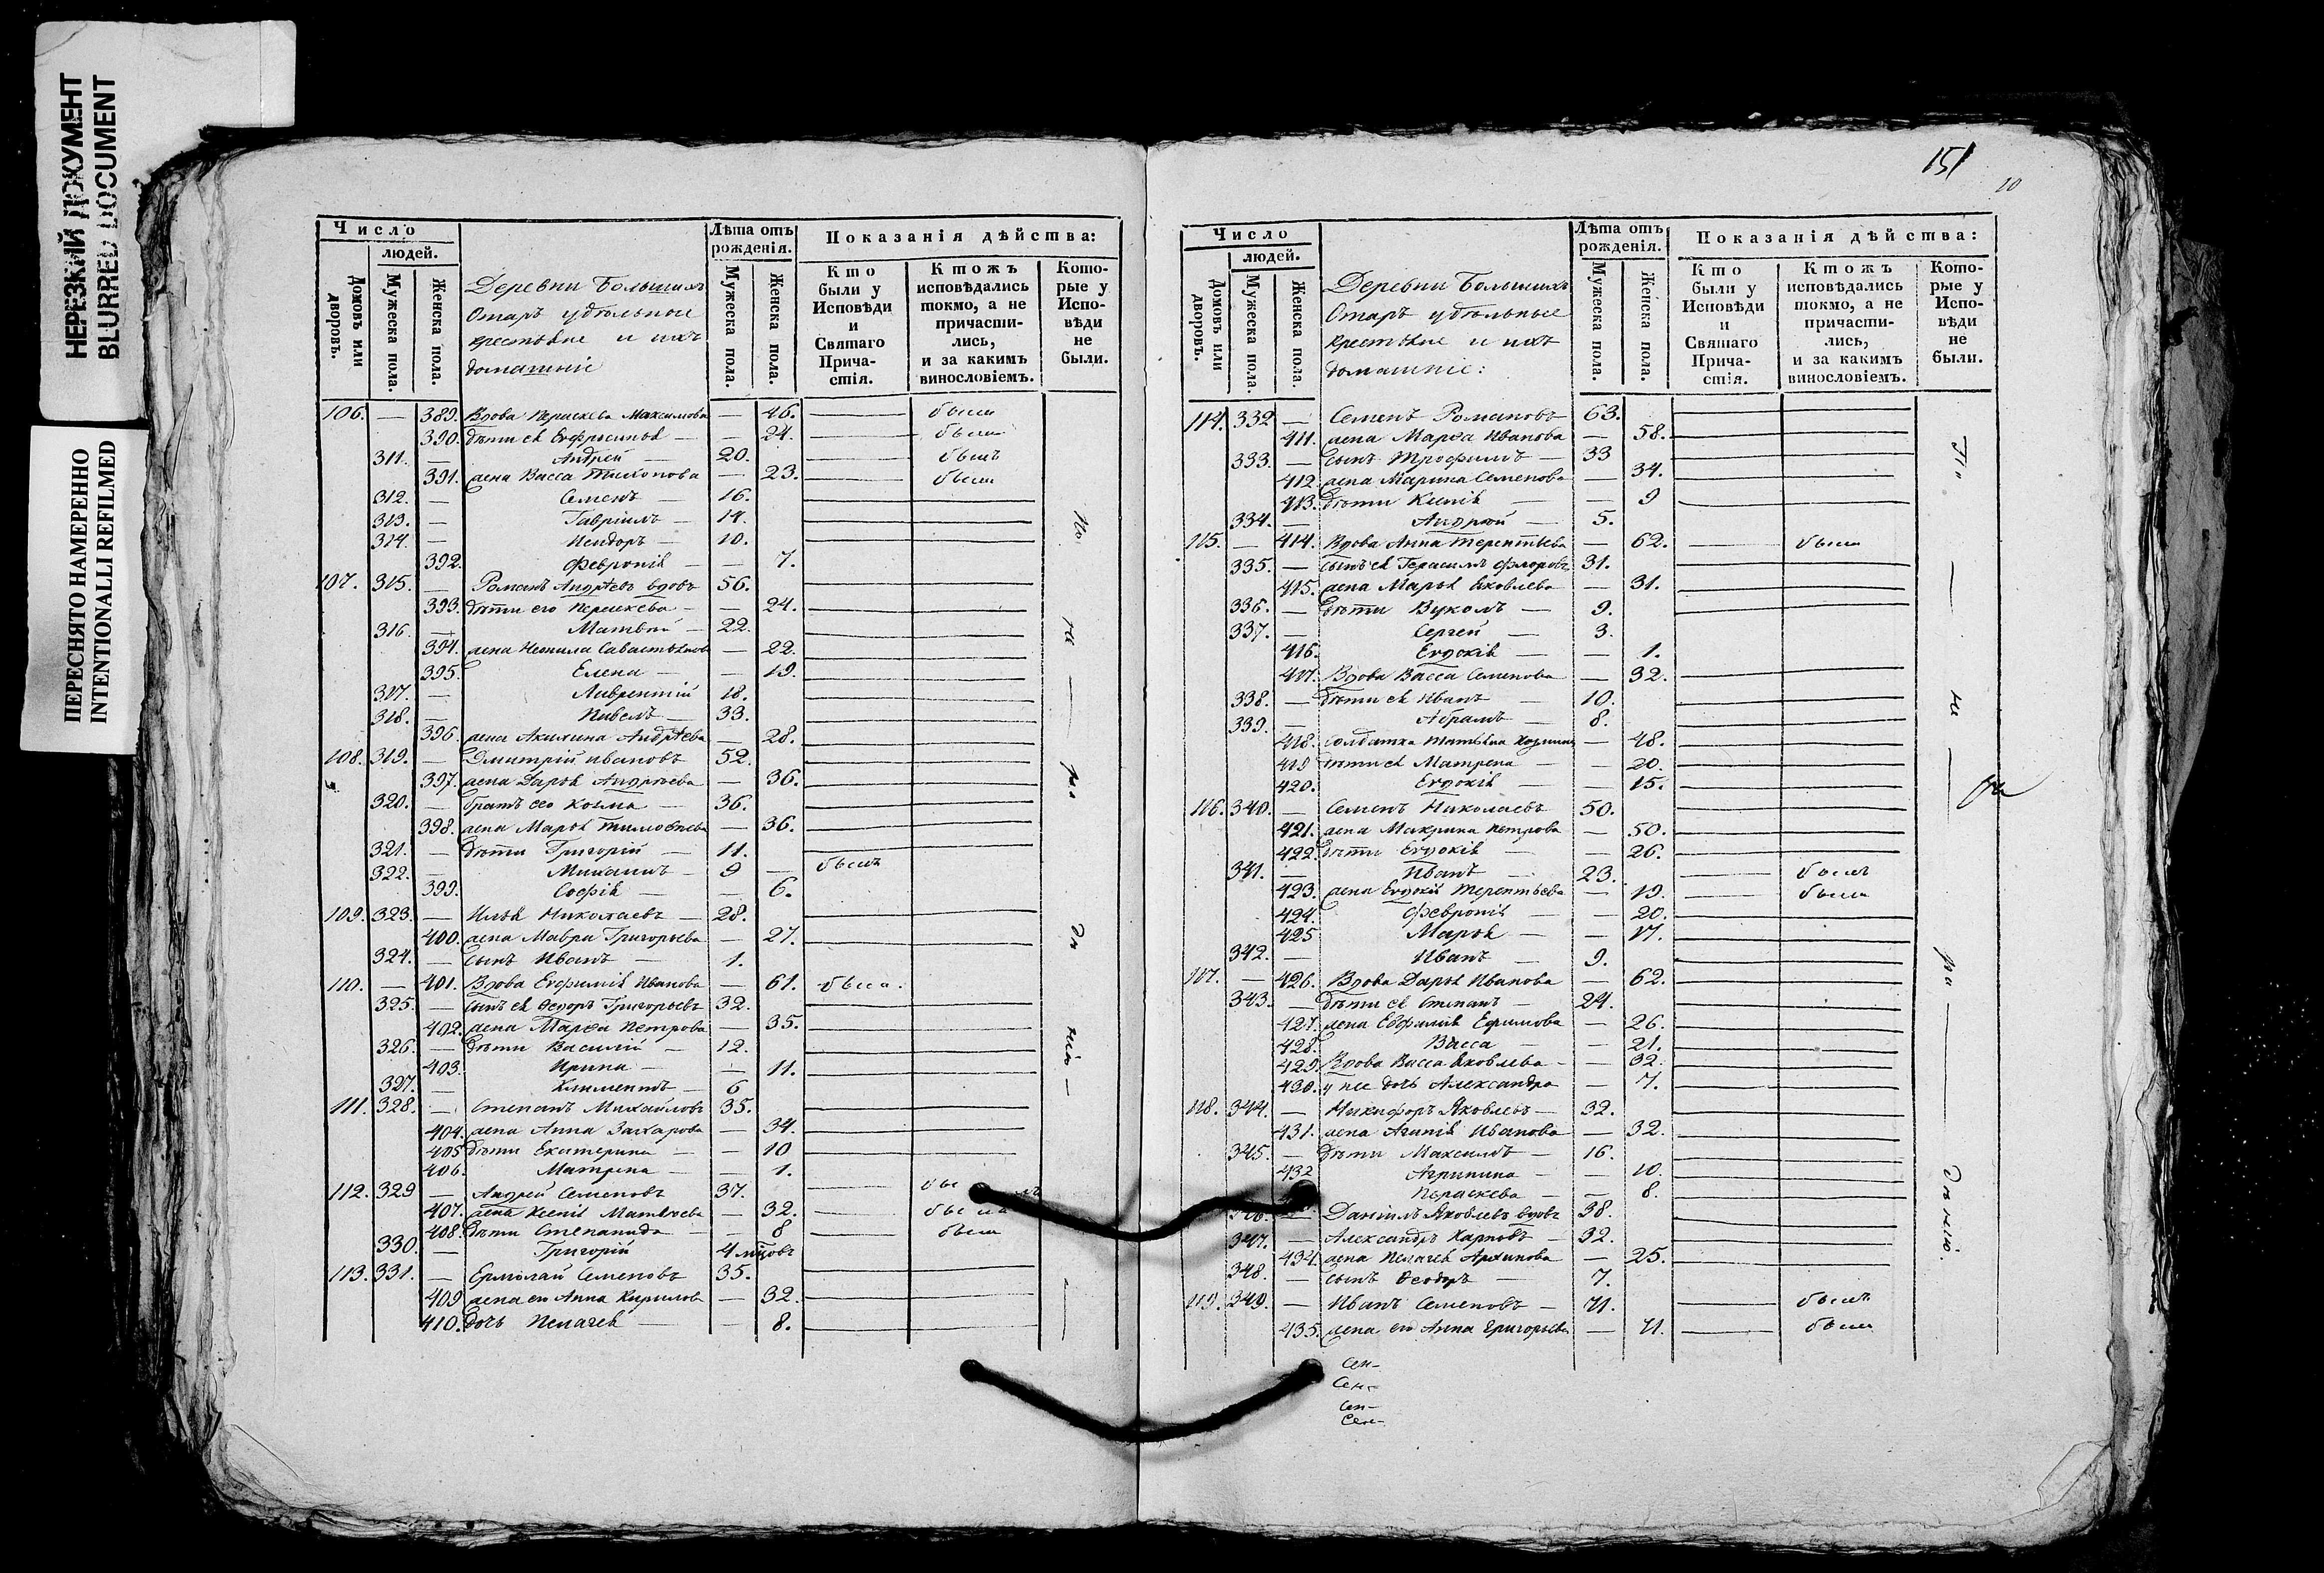 НЕРЕЗКИЙ ДОКУМЕНТ
BLURRED DOCUMENT
ПЕРЕСНЯТО НАМЕРЕННО
INTENTIONALLI REFILMED
Число
людей.
Домовъ или дворовъ.
Мужеска пола.
Женска пола.
Деревни Большихъ
Отаръ удѣльные
крестьяне и ихъ
домашніе
Лѣта отъ рожденія.
Мужеска пола.
Женска пола.
Показанія дѣйства:
Кто были у Исповѣди и Святаго Причастія.
Ктожъ исповѣдались токмо, а не причастились, и за какимъ винословіемъ.
Которые у Исповѣди не были.
106. — 389. Вдова Параскева Максимова — 46. была
390. дѣти ея Евфросинья — — 24. была
311. — Андрей — 20. былъ
391. жена Васса Тихонова — 23. была
312. — Семенъ — 16.
313. — Гавріилъ — 14.
314. — Исидоръ — 10.
392. Февронія — — 7.
107. 315. — Романъ Андрѣевъ вдовъ 56.
393. дѣти его Параскева — — 24.
316. — Матвей — 22.
394. жена Неонила — 22.
395. Елена — — 19.
317. — Лаврентій 18.
318. — Павелъ — 33.
396. жена Акилина Андрѣева — 28.
108. 319. — Дмитрій Ивановъ 52.
397. жена Дарья Андрѣева — 36.
320. — братъ его Козма — 36.
398. жена Марья — 36.
321. — дѣти Григорій — 11.
322. — Михаилъ — 9 — былъ
399. Софія — — 6.
109. 323. — Илья Николаевъ — 28.
400. жена Мавра Григорьева — 27.
324. — сынъ Иванъ — 1.
110. — 401. Вдова Евфимія Иванова — 61. была.
325. — сынъ ея Ѳедоръ Григорьевъ 32.
402. жена Марѳа Петрова — 35.
326. — дѣти Василій — 12.
403. Ирина — — 11.
327. — Климентъ — 6
111. 328. — Степанъ Михайловъ 35.
404. жена Анна Захарова — 34.
405 дѣти Екатерина — — 10
406. Матрена — — 1.
112. 329 — Андрей Семеновъ 37. былъ
407. жена Ксенія Матвѣева — 32. была
408. дѣти Степанида — — 8 была
330. — Григорій 4 мѣсцовъ
113. 331. — Ермолай Семеновъ 35.
409 жена его Анна Кирилова — 32.
410. дочь Пелагея — — 8.
По не ра дѣ нію —
151
10
Число
людей.
Домовъ или дворовъ.
Мужеска пола.
Женска пола.
Деревни Большихъ
Отаръ удѣльные
крестьяне и ихъ
домашніе:
Лѣта отъ рожденія.
Мужеска пола.
Женска пола.
Показанія дѣйства:
Кто были у Исповѣди и Святаго Причастія.
Ктожъ исповѣдались токмо, а не причастились, и за какимъ винословіемъ.
Которые у Исповѣди не были.
114. 332 — Семенъ Романовъ 63.
411. жена Марѳа Иванова — 58.
333. — сынъ Трофимъ — 33
412. жена Марина Семенова — 34.
413. дѣти Ксенія — — 9
334. — Андрей — 5.
115. — 414. Вдова Анна Терентьева — 62. была
335. — сынъ ея Герасимъ Флоровъ 31.
415. жена Марья Яковлева — 31.
336. — дѣти Вуколъ — 9.
337. — Сергей — 3.
416. Евдокія — — 1.
417. Вдова Васса Семенова — 32.
338. — дѣти ея Иванъ — 10.
339. — Абрамъ — 8.
418. солдатка Татьяна — 48.
419 дѣти ея Матрена — — 20.
420. Евдокія — — 15.
116. 340. — Семенъ Николаевъ 50.
421. жена Макрина Петрова — 50.
422. дѣти Евдокія — — 26.
341. — Иванъ — 23. былъ
423. жена Евдокія Терентьева — 19. была
424. Февронія — — 20.
425 Марья — — 17.
342. — Иванъ — 9.
117. — 426. Вдова Дарья Иванова — 62.
343. — дѣти ея Степанъ — 24.
427. жена Евфимія Ефимова — 26.
428. Васса — — 21.
429. Вдова Васса Яковлева — — 32.
430. у нее дочь Александра — 7.
118. 344. — Никифоръ Яковлевъ — 32.
431. жена Агапія Иванова — 32.
345. — дѣти Максимъ — 16.
432 Агрипина — — 10.
Параскева — — 8.
346. — Даніилъ Яковлевъ вдовъ 38.
347. — Александръ Карповъ — 32.
434. жена Пелагея Архипова — 25.
348. — сынъ Ѳеодоръ — 7.
119. 349. — Иванъ Семеновъ — 71. былъ
435. жена его Анна Григорьева — 71. была
не — ра — дѣнію.
Сен-
Сен-
Сен-
Сен-